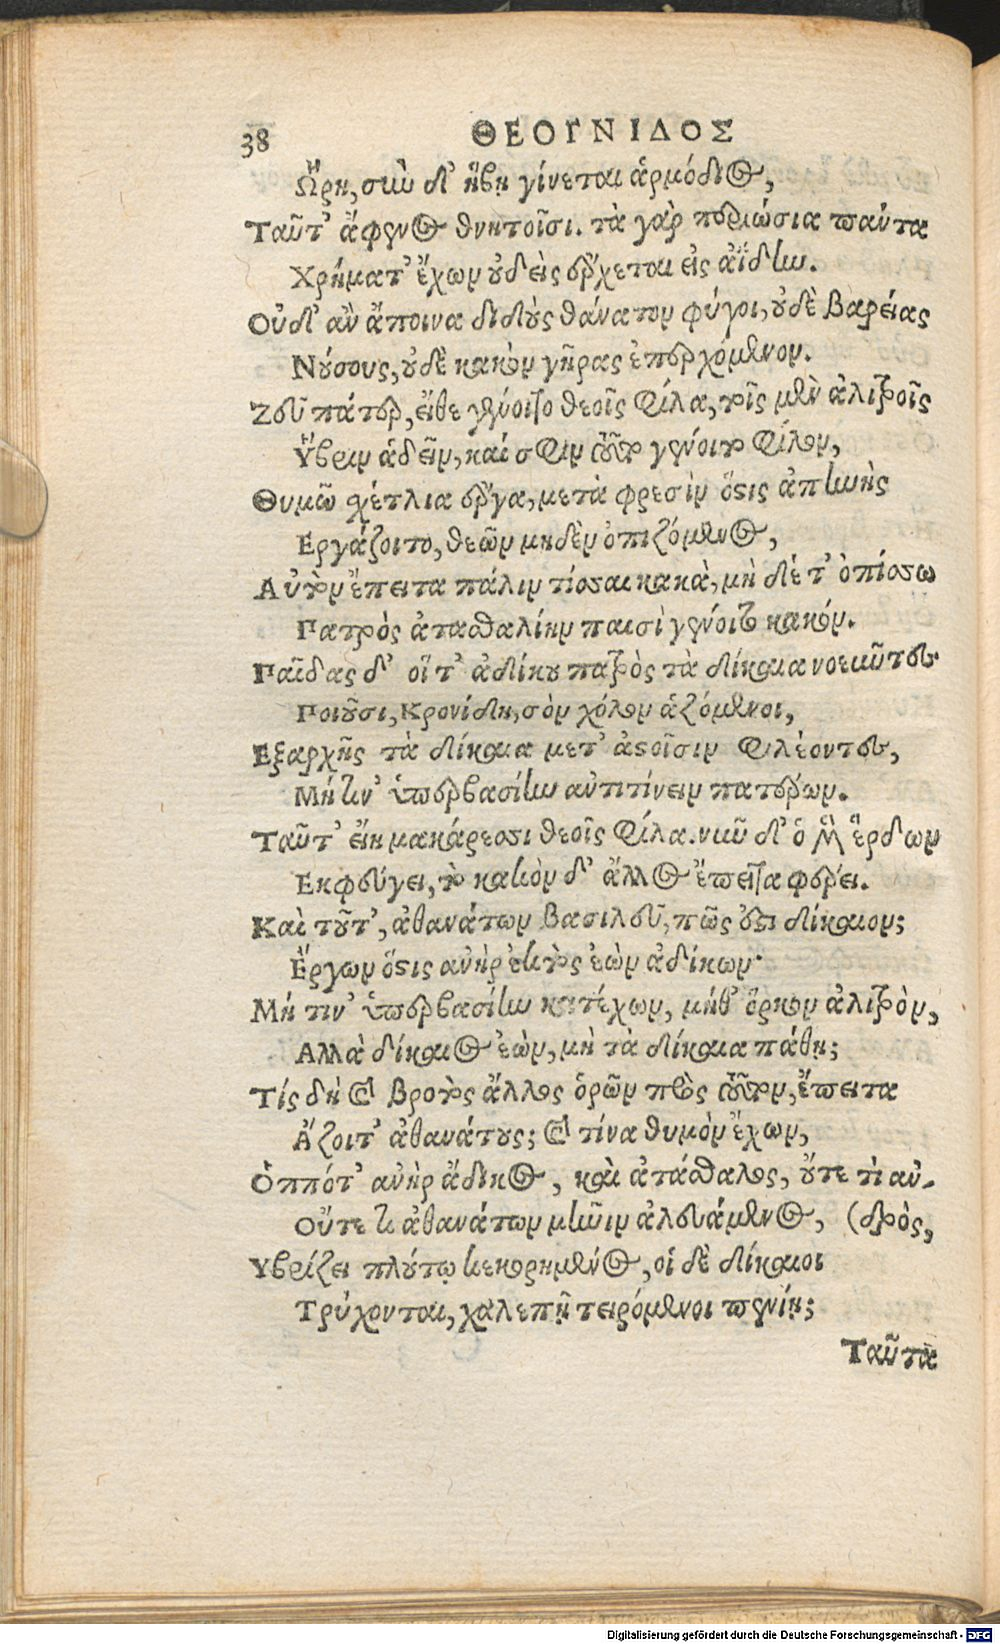 38 ΘΕΟΓΝΙΔΟΣ
Ὥρη, σιὼ δ᾽ ἥβῃ γίνεται ἁρμόδιος,
Ταῦτ᾽ ἄφενος θνητοῖσι. τὰ γὰρ περιώσια πάντα
Χρήματ᾽ ἔχων οὐδεὶς ἔρχεται εἰς ἀΐδην.
Οὐδ᾽ ἂν ἄποινα διδοὺς θάνατον φύγοι, οὐδὲ βαρείας
Νούσους, οὐδὲ κακὸν γῆρας ἐπερχόμενον.
Ζεῦ πάτερ, εἴθε γένοιτο θεοῖς φίλα, τοῖς μὲν ἀλιτροῖς
Ὕβριν ἁδεῖν, καί σφιν τοῦτο γένοιτο φίλον,
Θυμῷ σχέτλια ἔργα, μετὰ φρεσὶν ὅστις ἀπηνὴς
Εργάζοιτο, θεῶν μηδὲν ὀπιζόμενος,
Αὐτὸν ἔπειτα πάλιν τίσαι κακὰ, μὴ δέ τ᾽ ὀπίσσω
Πατρὸς ἀτασθαλίην παισὶ γένοιτο κακόν.
Παῖδας δ᾽ οἵ τ᾽ ἀδίκου πατρὸς τὰ δίκαια νοεῦντες
Ποιοῦσι, Κρονίδη, σὸν χόλον ἁζόμενοι,
Εξαρχῆς τὰ δίκαια μετ᾽ ἀστοῖσιν φιλέοντες,
Μή τιν᾽ ὑπερβασίην ἀντιτίνειν πατέρων.
Ταῦτ᾽ εἴη μακάρεσσι θεοῖς φίλα. νῦν δ᾽ ὁ μὲν ἔρδων
Εκφεύγει, τὸ κακὸν δ᾽ ἄλλος ἔπειτα φέρει.
Καὶ τοῦτ᾽, ἀθανάτων βασιλεῦ, πῶς ἐστι δίκαιον;
Ἔργων ὅστις ἀνὴρ ἐκτὸς ἐὼν ἀδίκων·
Μή τιν᾽ ὑπερβασίην κατέχων, μήθ᾽ ὅρκον ἀλιτρὸν,
Αλλὰ δίκαιος ἐὼν, μὴ τὰ δίκαια πάθῃ;
Τίς δή καὶ βροτὸς ἄλλος ὁρῶν πρὸς τοῦτον, ἔπειτα
Ἅζοιτ᾽ ἀθανάτους; καὶ τίνα θυμὸν ἔχων,
Ὁππότ᾽ ἀνὴρ ἄδικος, καὶ ἀτάσθαλος, οὔτε τὶ ἀν-
Οὔτε τι ἀθανάτων μῆνιν ἀλευάμενος, (δρὸς,
Υβρίζει πλούτῳ κεκορημένος, οἱ δὲ δίκαιοι
Τρύχονται, χαλεπῇ τειρόμενοι πενίῃ;
Ταῦτα
Digitalisierung gefördert durch die Deutsche Forschungsgemeinschaft - DFG